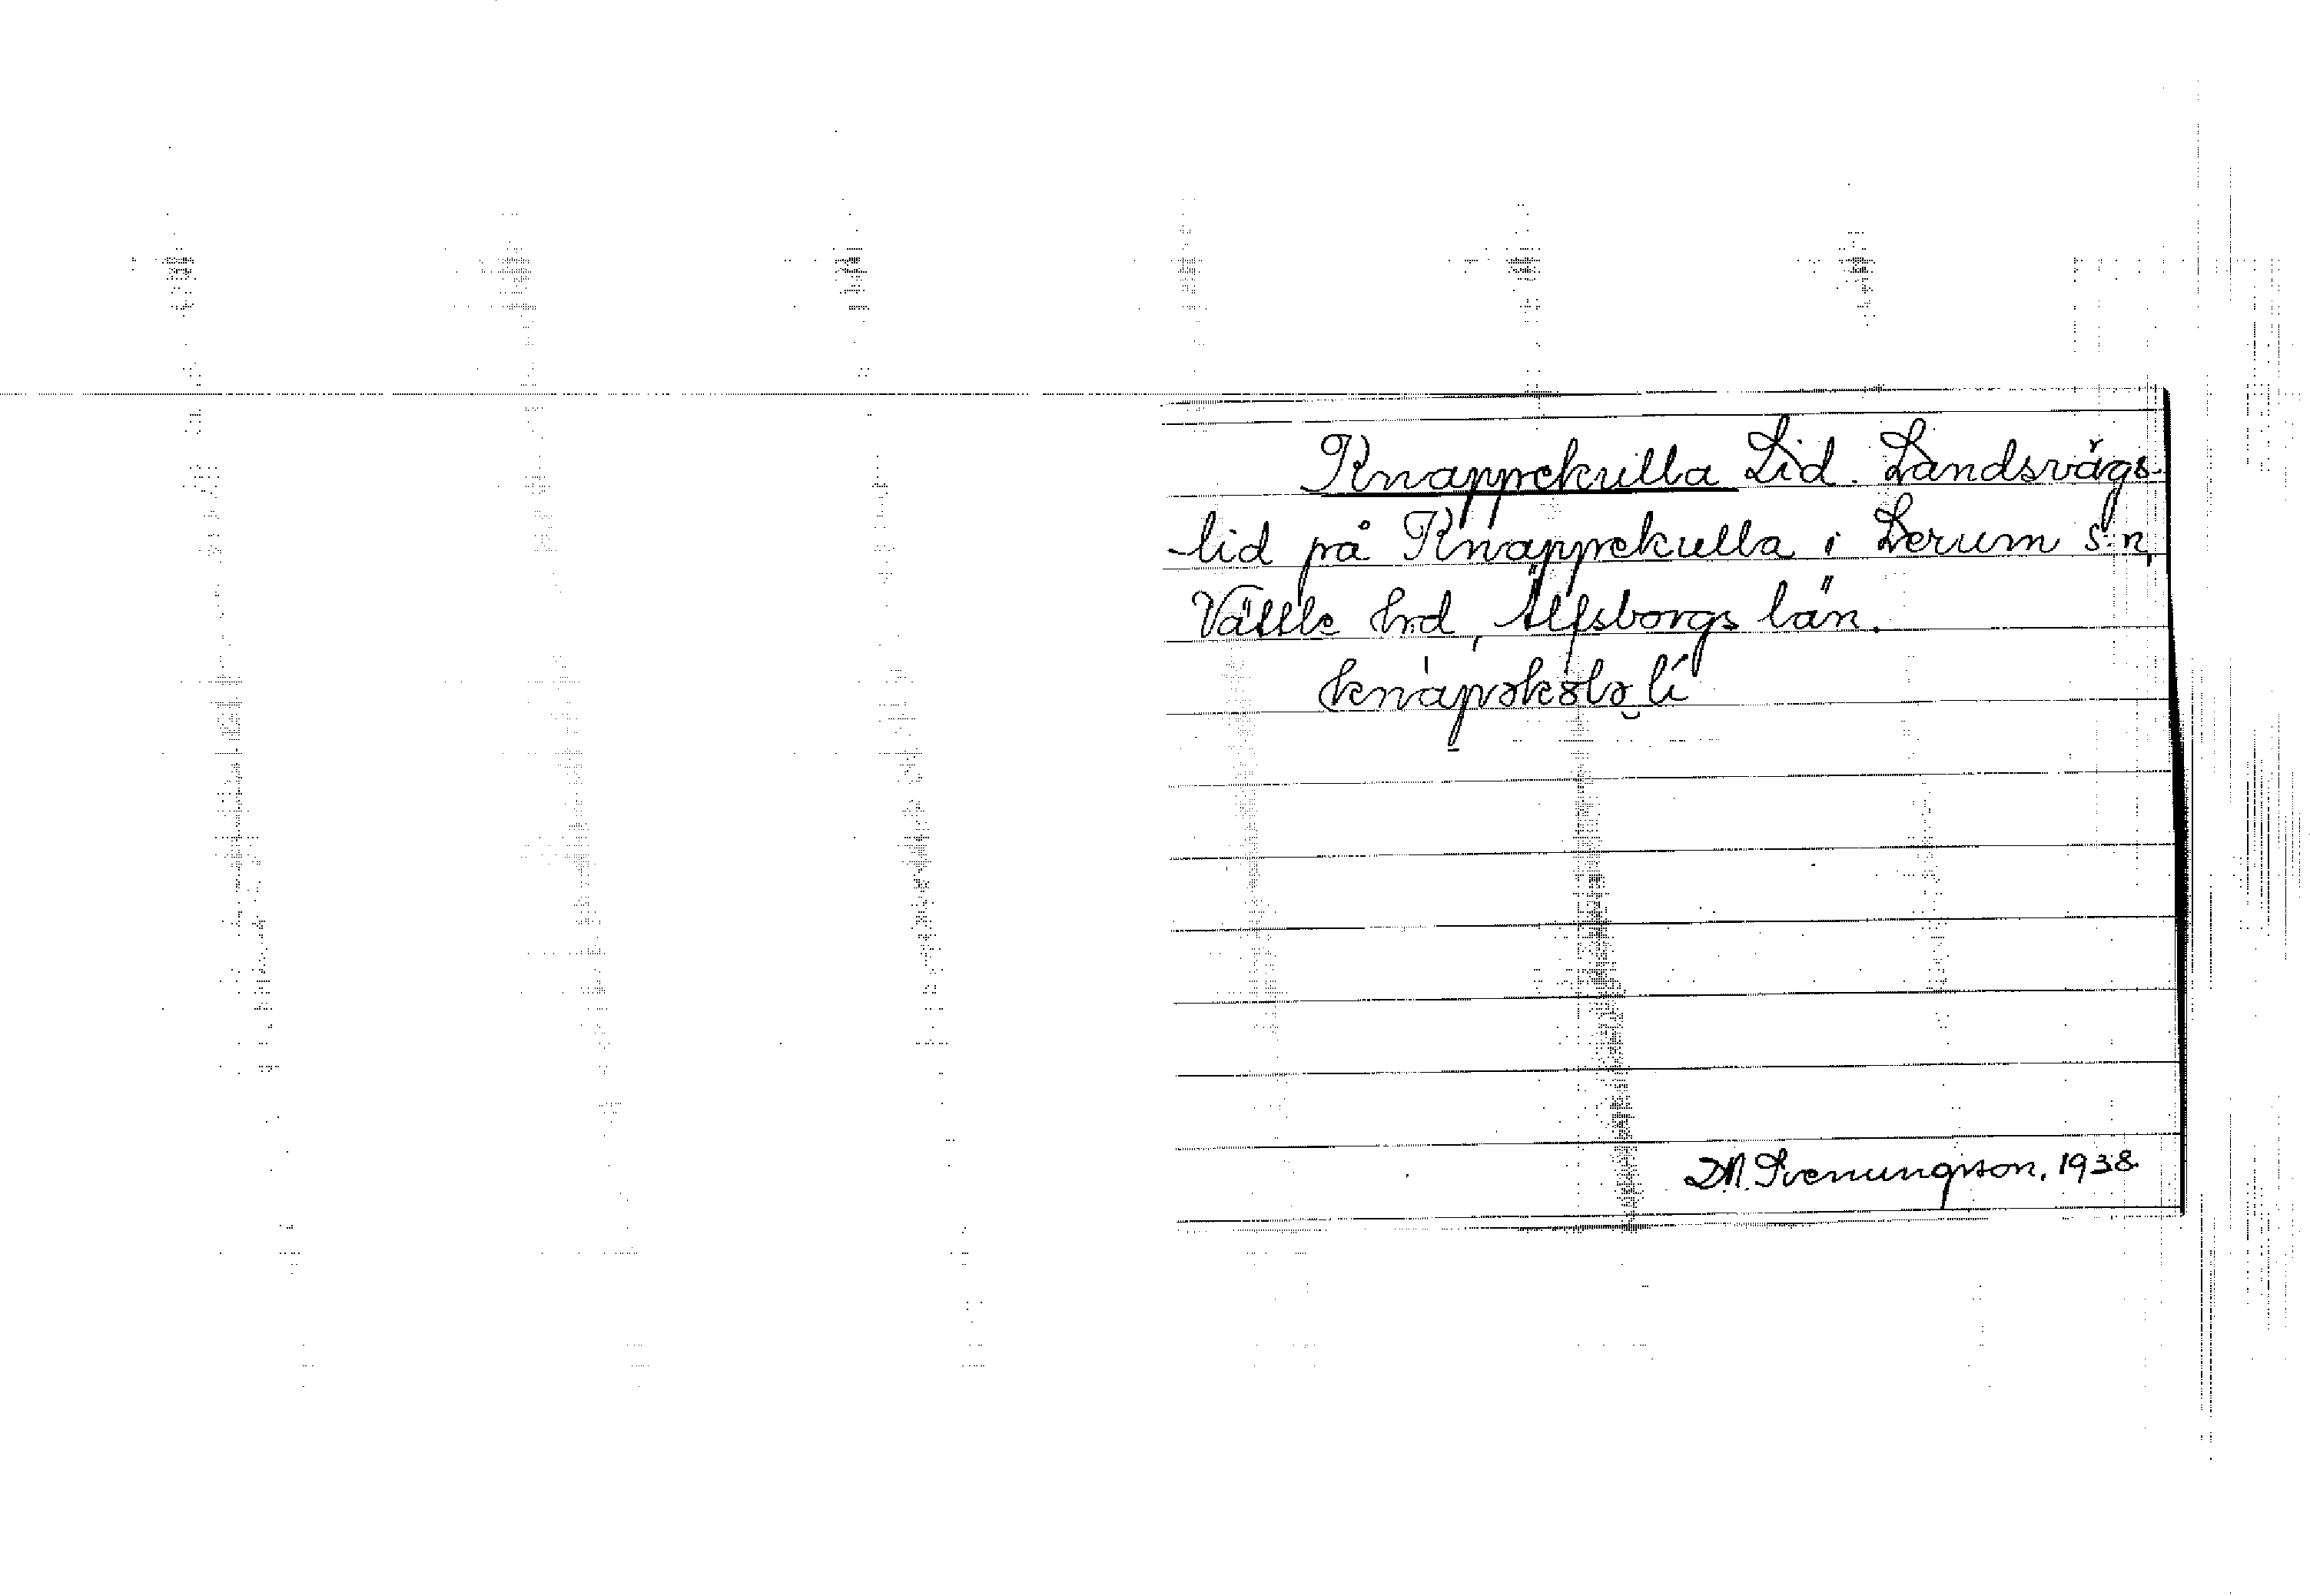 Knappekulla Lid. Landsvägs-
lid på Knappekulla i Lerum s:n,
Vättle hrd, Älfsborgs län.
knapəkələ lí
D.N. Svenungsson. 1938.